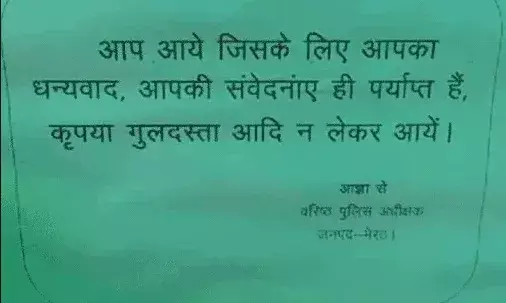 आप आये जिसके लिए आपका
धन्यवाद, आपकी संवेदनांए ही पर्याप्त हैं,
कृपया गुलदस्ता आदि न लेकर आयें।
आज्ञा से
वरिष्ठ पुलिस अधीक्षक
जनपद-मेरठ।